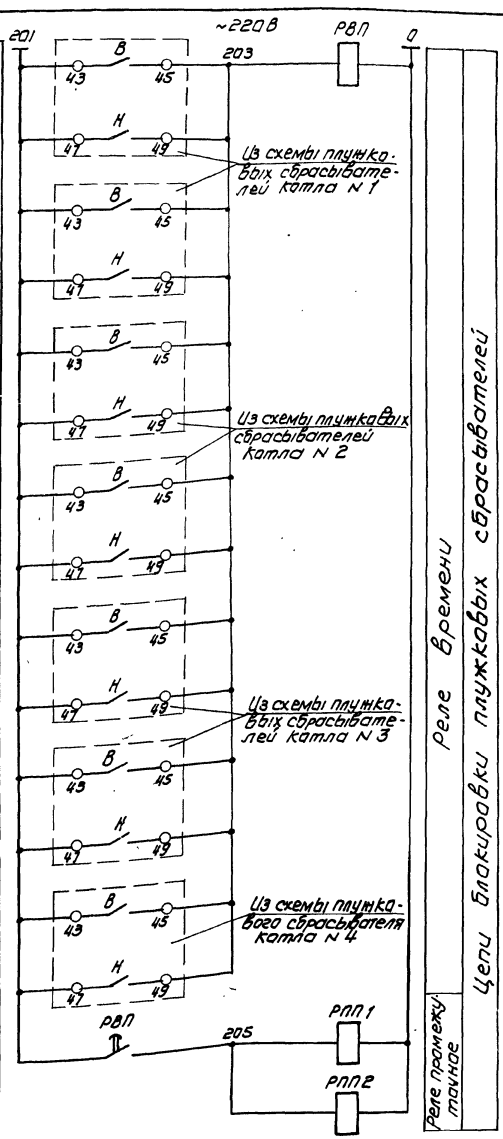 201
~220В
РВП
0
В
203
43
45
Н
47
49
Из схемы плужко-
вых сбрасывате-
лей котла N 1
В
43
45
Н
47
49
В
43
45
Н
47
49
Из схемы плужковых
сбрасывателей
котла N 2
В
43
45
Н
47
49
В
43
45
Н
47
49
Из схемы плужко-
вых сбрасывате-
лей котла N 3
В
43
45
Н
47
49
В
43
45
Из схемы плужко-
вого сбрасывателя
котла N 4
Н
47
49
РВП
205
РПП1
РПП2
Реле времени
Реле промежу-
точное
Цепи блокировки плужковых сбрасывателей